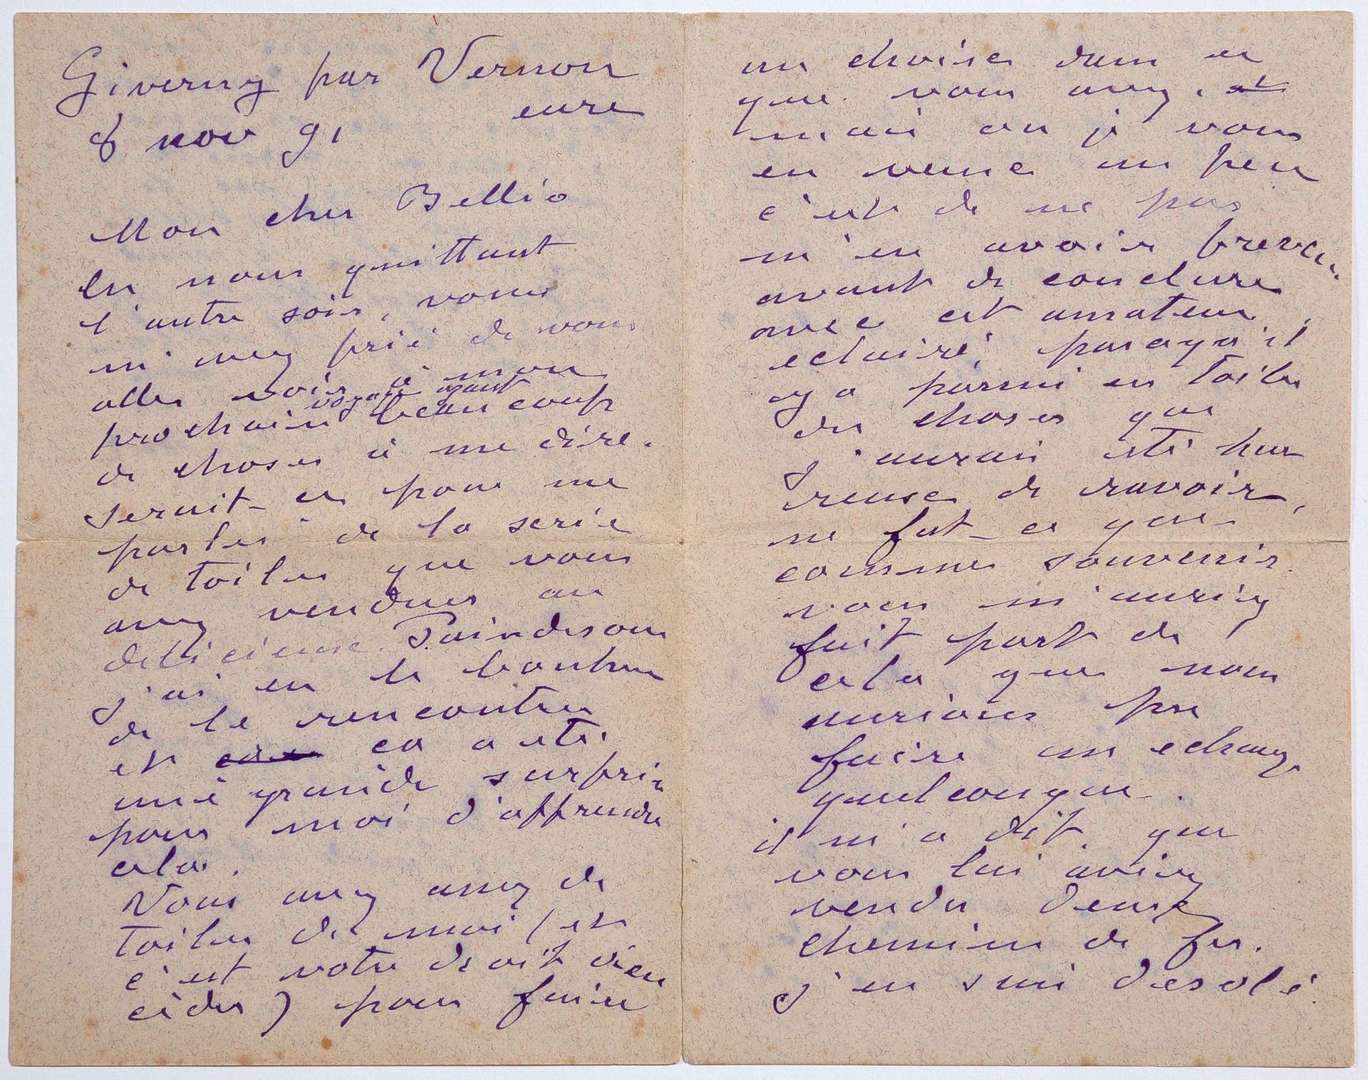 Giverny par Vernon
eure
8 nov 91
Mon cher Bellio
En nous quittant
l'autre soir, vous
m'avez prié de vous
aller voir à mon
prochain voyage ayant beaucoup
de choses à me dire.
serait-ce pour me
parler de la serie
de toiles que vous
avez vendues au
delicieux Poindesou
j'ai eu le bonheur
de le rencontrer
et ca a été
une grande surprise
pour moi d'apprendre
cela.
Vous avez assez de
toiles de moi (et
c'est votre droit d'en
ceder) pour faire
un choix dans ce
que vous avez,
mais où je vous
en veux un peu
c'est de ne pas
m'en avoir prevenu
avant de conclure
avec cet amateur
eclairé, parcequ'il
y a parmi ces toiles
des choses que
j'aurais été heu
reux de ravoir,
ne fut-ce que
comme souvenir.
vous m'auriez
fait part de
cela que nous
aurions pu
faire un echange
quelconque.
il m'a dit que
vous lui aviez
vendu deux
chemins de fer.
j'en suis desolé